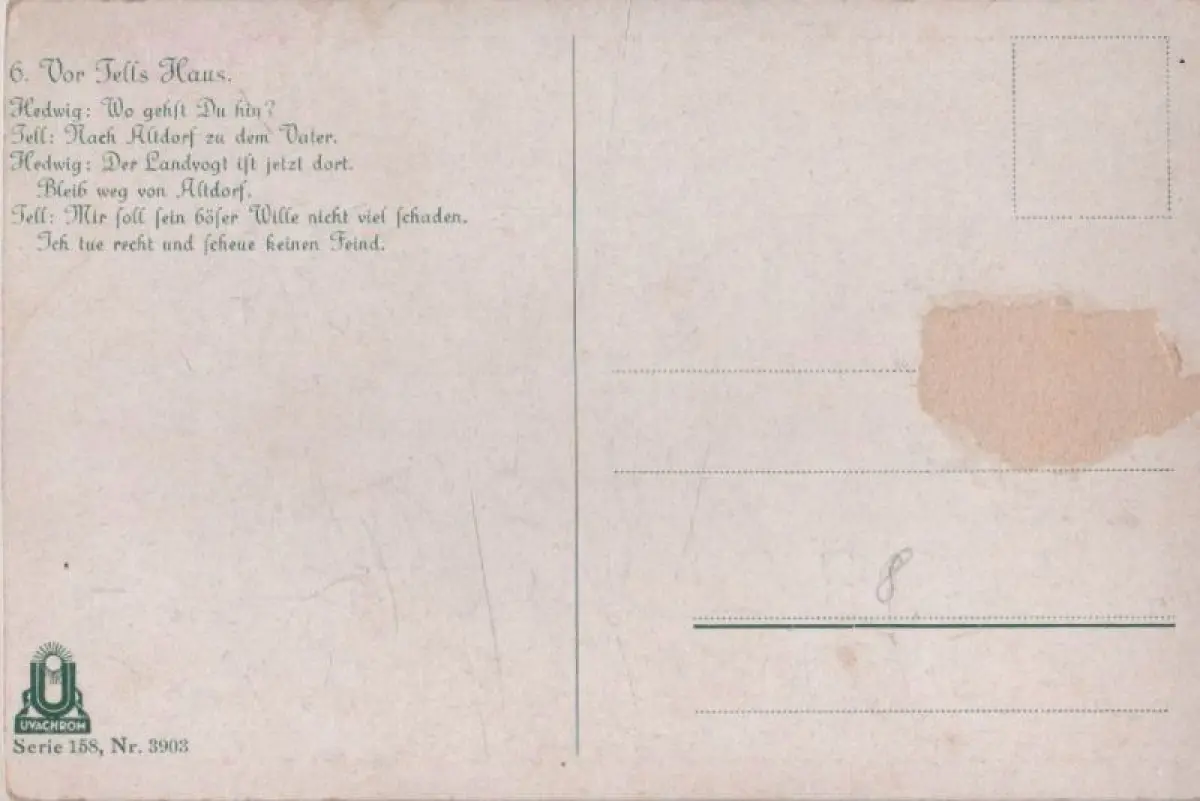 6. Vor Tells Haus.
Hedwig: Wo gehst Du hin?
Tell: Nach Altdorf zu dem Vater.
Hedwig: Der Landvogt ist jetzt dort.
Bleib weg von Altdorf.
Tell: Mir soll sein böser Wille nicht viel schaden.
Ich tue recht und scheue keinen Feind.
8
UVACHROM
Serie 158, Nr. 3903